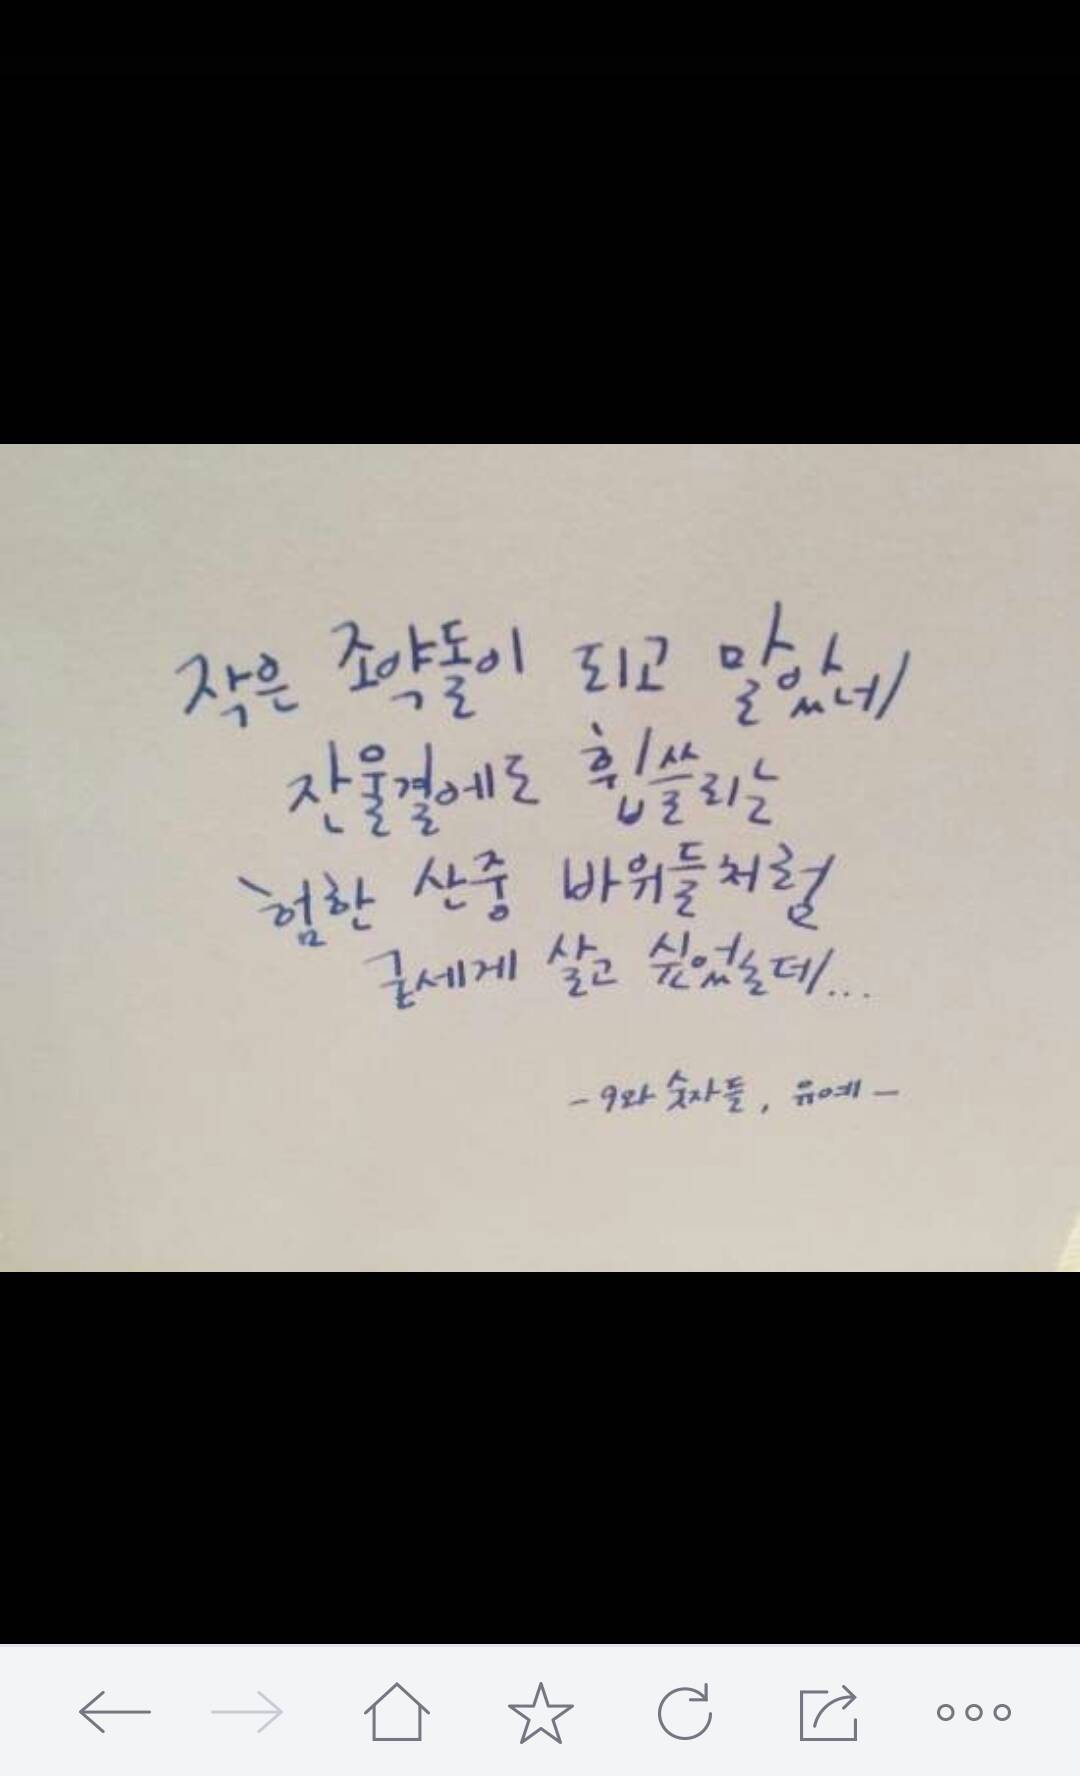 작은 조약돌이 되고 말았네
잔물결에도 휩쓸리는
험한 산중 바위들처럼
굳세게 살고 싶었는데...
- 9와 숫자들, 유예 -